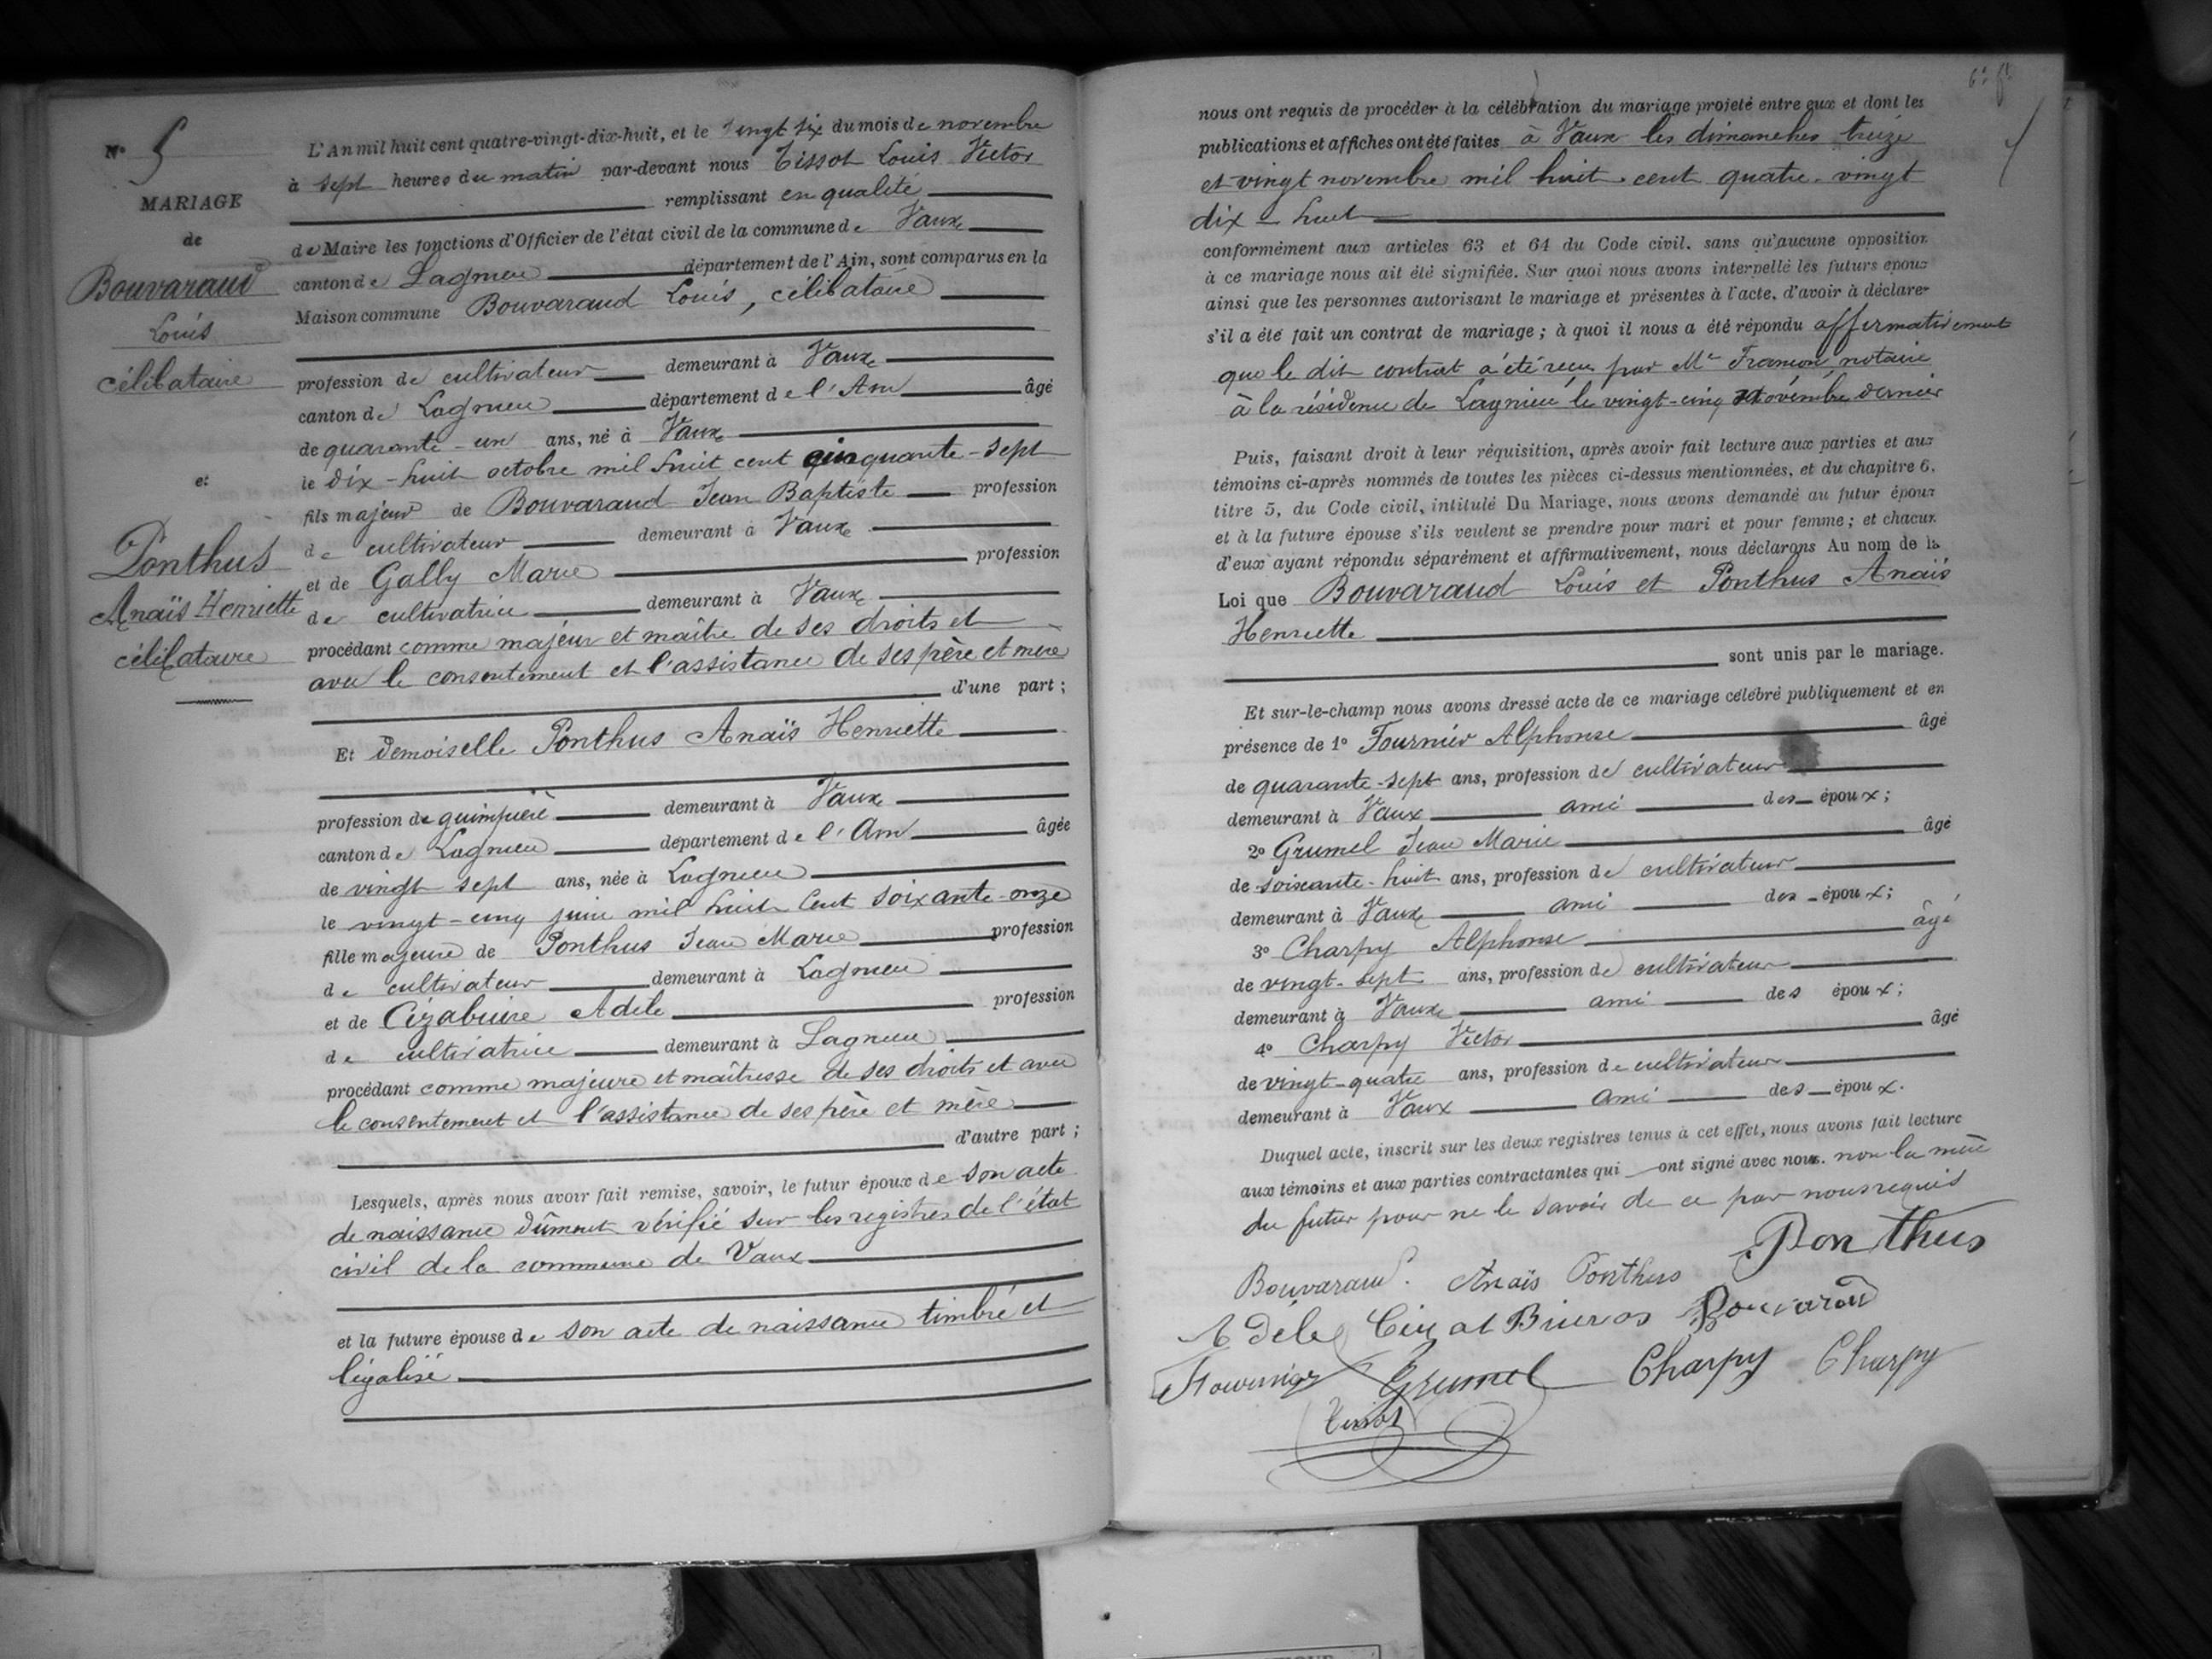 N° 5
MARIAGE
de
Bouvaraud
Louis
célibataire
et
Ponthus
Anaïs Henriette
célibataire
L'An mil huit cent quatre-vingt-dix-huit, et le vingt six du mois de novembre
à sept heures du matin par-devant nous Tissot Louis Victor
remplissant en qualité
de Maire les fonctions d'Officier de l'état civil de la commune de Vaux
canton de Lagnieu département de l'Ain, sont comparus en la
Maison commune Bouvaraud Louis, célibataire
profession de cultivateur demeurant à Vaux
canton de Lagnieu département de l'Ain âgé
de quarante-un ans, né à Vaux
le dix-huit octobre mil huit cent cinquante-sept
fils majeur de Bouvaraud Jean Baptiste profession
de cultivateur demeurant à Vaux
et de Gally Marie profession
de cultivatrice demeurant à Vaux
procédant comme majeur et maître de ses droits et
avec le consentement et l'assistance de ses père et mère
d'une part ;
Et demoiselle Ponthus Anaïs Henriette
profession de guimpière demeurant à Vaux
canton de Lagnieu département de l'Ain âgée
de vingt sept ans, née à Lagnieu
le vingt-cinq juin mil huit cent soixante-onze
fille majeure de Ponthus Jean Marie profession
de cultivateur demeurant à Lagnieu
et de Cizabuire Adèle profession
de cultivatrice demeurant à Lagnieu
procédant comme majeure et maîtresse de ses droits et avec
le consentement et l'assistance de ses père et mère
d'autre part ;
Lesquels, après nous avoir fait remise, savoir, le futur époux de son acte
de naissance dûment vérifié sur les registres de l'état
civil de la commune de Vaux
et la future épouse de son acte de naissance timbré et
légalisé
nous ont requis de procéder à la célébration du mariage projeté entre eux et dont les
publications et affiches ont été faites à Vaux les dimanches treize
et vingt novembre mil huit cent quatre-vingt
dix-huit
conformément aux articles 63 et 64 du Code civil. sans qu'aucune opposition
à ce mariage nous ait été signifiée. Sur quoi nous avons interpellé les futurs époux
ainsi que les personnes autorisant le mariage et présentes à l'acte, d'avoir à déclarer
s'il a été fait un contrat de mariage ; à quoi il nous a été répondu affirmativement
que le dit contrat a été reçu par Me Francon notaire
à la résidence de Lagnieu le vingt-cinq novembre dernier
Puis, faisant droit à leur réquisition, après avoir fait lecture aux parties et aux
témoins ci-après nommés de toutes les pièces ci-dessus mentionnées, et du chapitre 6,
titre 5, du Code civil, intitulé Du Mariage, nous avons demandé au futur époux
et à la future épouse s'ils veulent se prendre pour mari et pour femme ; et chacun
d'eux ayant répondu séparément et affirmativement, nous déclarons Au nom de la
Loi que Bouvaraud Louis et Ponthus Anaïs
Henriette
sont unis par le mariage.
Et sur-le-champ nous avons dressé acte de ce mariage célébré publiquement et en
présence de 1° Fournier Alphonse âgé
de quarante-sept ans, profession de cultivateur
demeurant à Vaux ami des époux ;
2° Grumel Jean Marie âgé
de soixante-huit ans, profession de cultivateur
demeurant à Vaux ami des époux ;
3° Charpy Alphonse âgé
de vingt-sept ans, profession de cultivateur
demeurant à Vaux ami des époux ;
4° Charpy Victor âgé
de vingt-quatre ans, profession de cultivateur
demeurant à Vaux ami des époux.
Duquel acte, inscrit sur les deux registres tenus à cet effet, nous avons fait lecture
aux témoins et aux parties contractantes qui ont signé avec nous. non la mère
du futur pour ne le savoir de ce par nous requis
Ponthus
Bouvaraud. Anaïs Ponthus
Adèle Bouvaraud
Fournier Grumel Charpy Charpy
Tissot